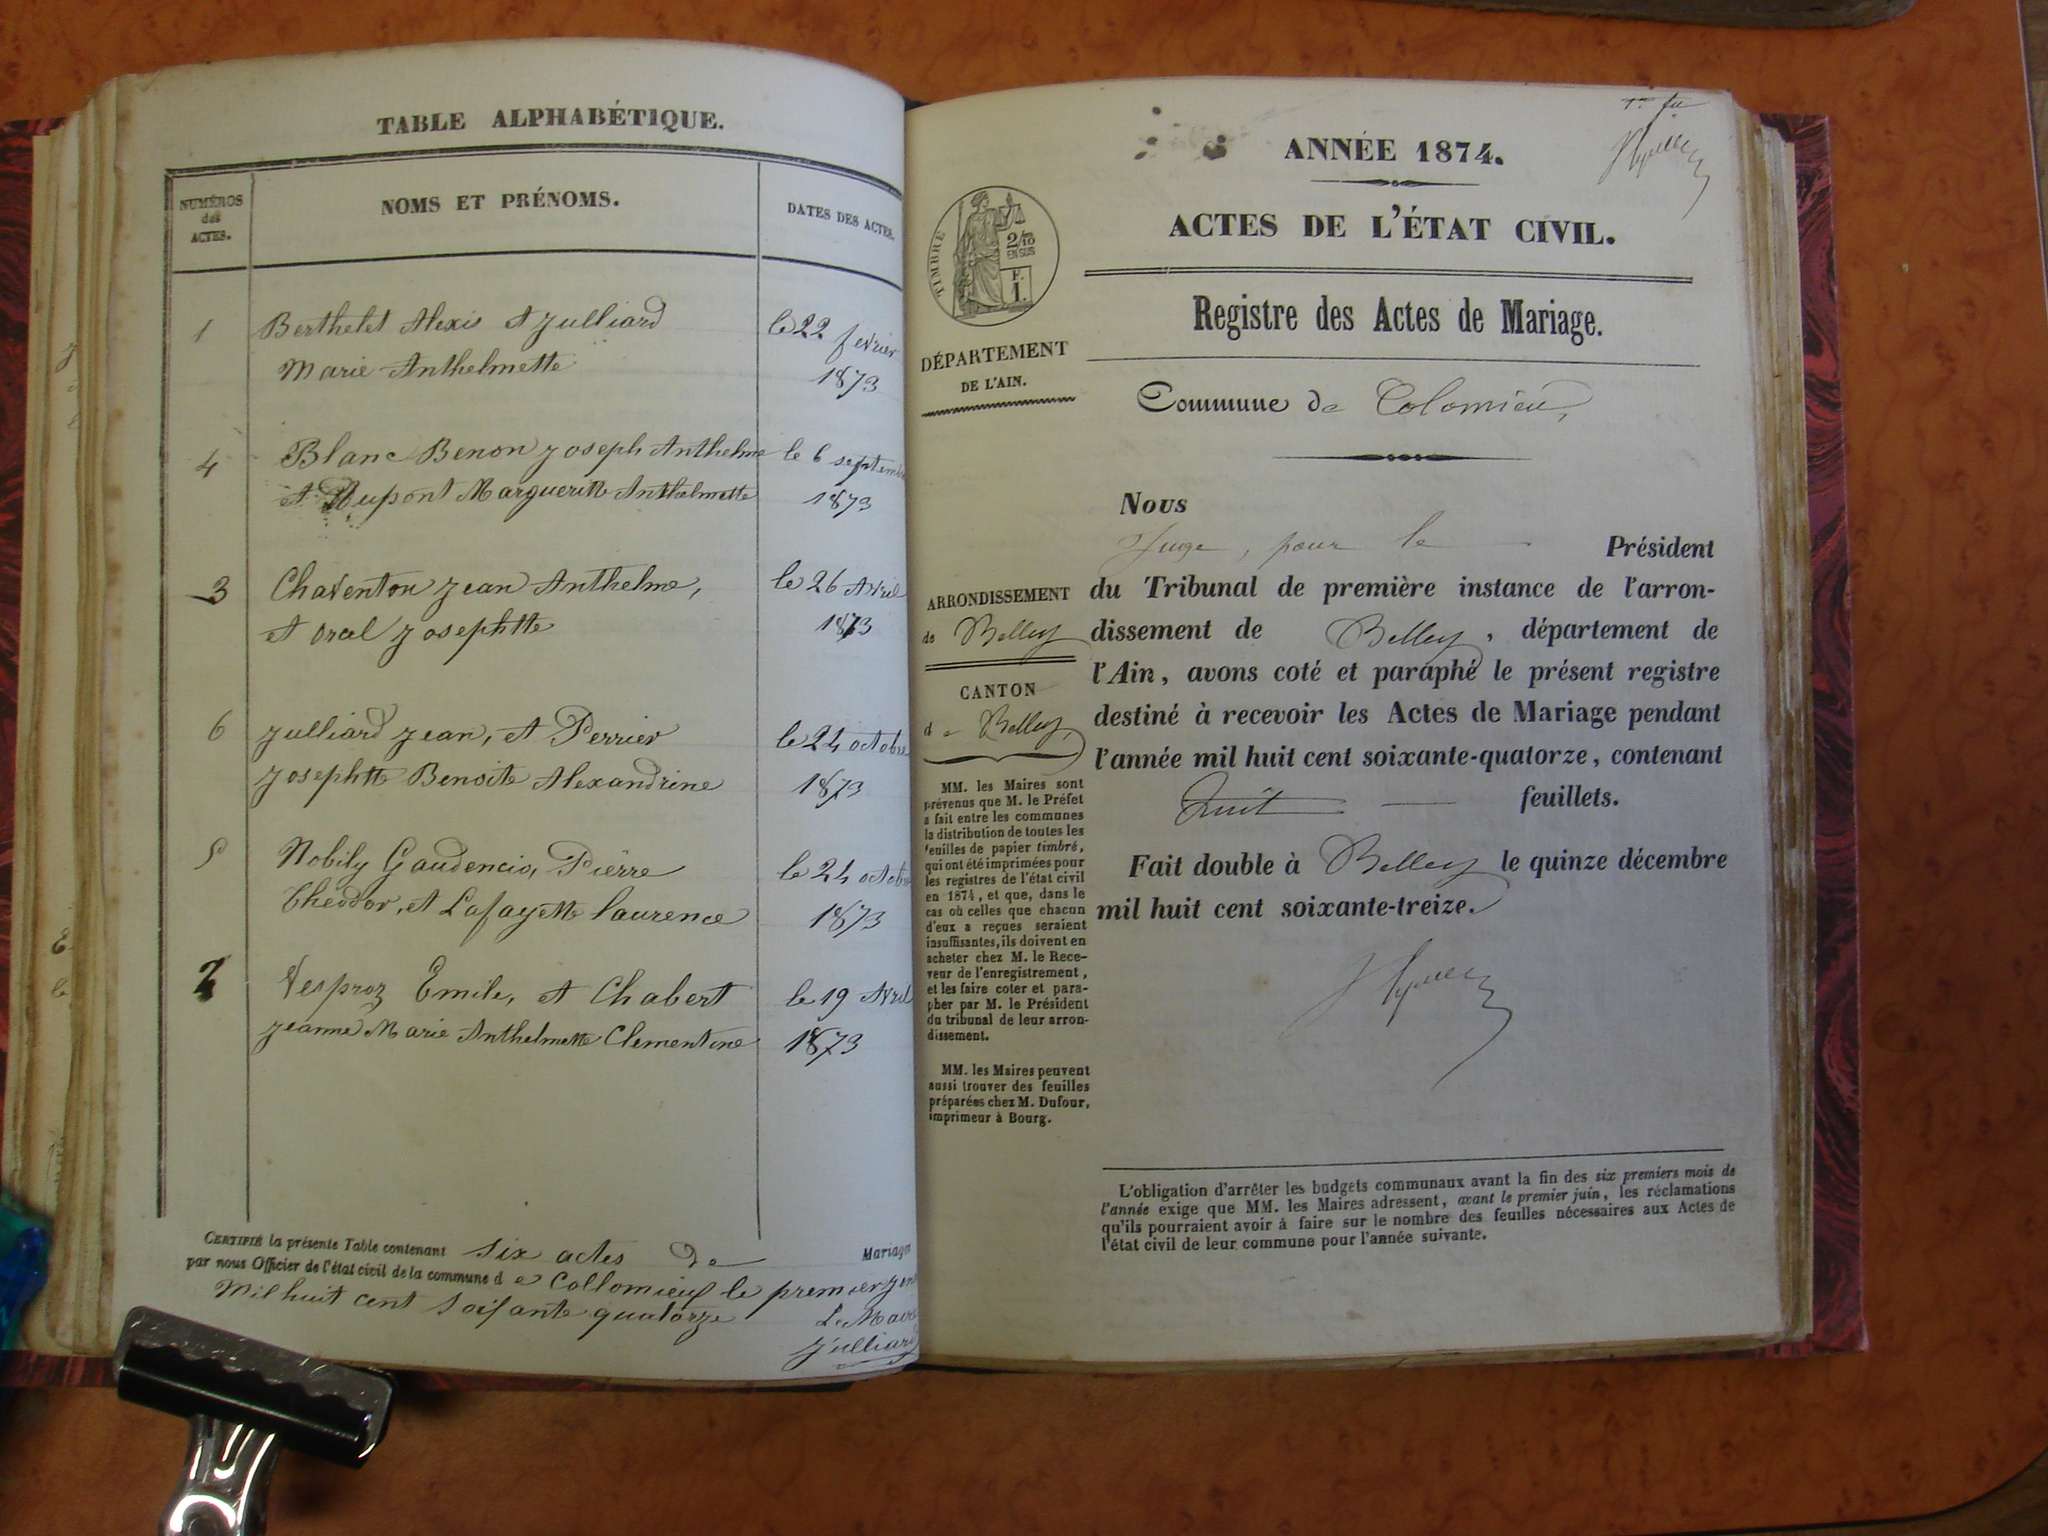 TABLE ALPHABÉTIQUE.
NUMÉROS des ACTES.
NOMS ET PRÉNOMS.
DATES DES ACTES.
1 Berthelet Alexis et Julliard le 22 fevrier
Marie Anthelmette 1873
4 Blanc Benon Joseph Anthelme le 6 septembre
et Dupont Margueritte Anthelmette 1873
3 Chaventon Jean Anthelme, le 26 Avril
et Oral Josephtte 1873
6 Julliard Jean, et Perrier le 24 octobre
Josephtte Benoite Alexandrine 1873
5 Nobily Gaudencio, Pièrre le 24 octob
Théodor, et Lafayette laurence 1873
2 Vesproz Emile, et Chabert le 19 Avril
Jeanne Marie Anthelmette Clementine 1873
CERTIFIÉ la présente Table contenant six actes de Mariages
par nous Officier de l'état civil de la commune de Collomieux le premier jan
Mil huit cent Soixante quatorze Le Maire
Julliard
ANNÉE 1874.
ACTES DE L'ÉTAT CIVIL.
Registre des Actes de Mariage.
TIMBRE
2/10
EN SUS
F.
1.
DÉPARTEMENT
DE L'AIN.
Commune de Colomieu,
Nous
Juge, pour le Président
du Tribunal de première instance de l'arron-
dissement de Belley, département de
l'Ain, avons coté et paraphé le présent registre
destiné à recevoir les Actes de Mariage pendant
l'année mil huit cent soixante-quatorze, contenant
huit feuillets.
Fait double à Belley le quinze décembre
mil huit cent soixante-treize.
ARRONDISSEMENT
de Belley
CANTON
de Belley,
MM. les Maires sont
prévenus que M. le Préfet
a fait entre les communes
la distribution de toutes les
feuilles de papier timbré,
qui ont été imprimées pour
les registres de l'état civil
en 1874, et que, dans le
cas où celles que chacun
d'eux a reçues seraient
insuffisantes, ils doivent en
acheter chez M. le Rece-
veur de l'enregistrement,
et les faire coter et para-
pher par M. le Président
du tribunal de leur arron-
dissement.
MM. les Maires peuvent
aussi trouver des feuilles
préparées chez M. Dufour,
imprimeur à Bourg.
L'obligation d'arrêter les budgets communaux avant la fin des six premiers mois de
l'année exige que MM. les Maires adressent, avant le premier juin, les réclamations
qu'ils pourraient avoir à faire sur le nombre des feuilles nécessaires aux Actes de
l'état civil de leur commune pour l'année suivante.